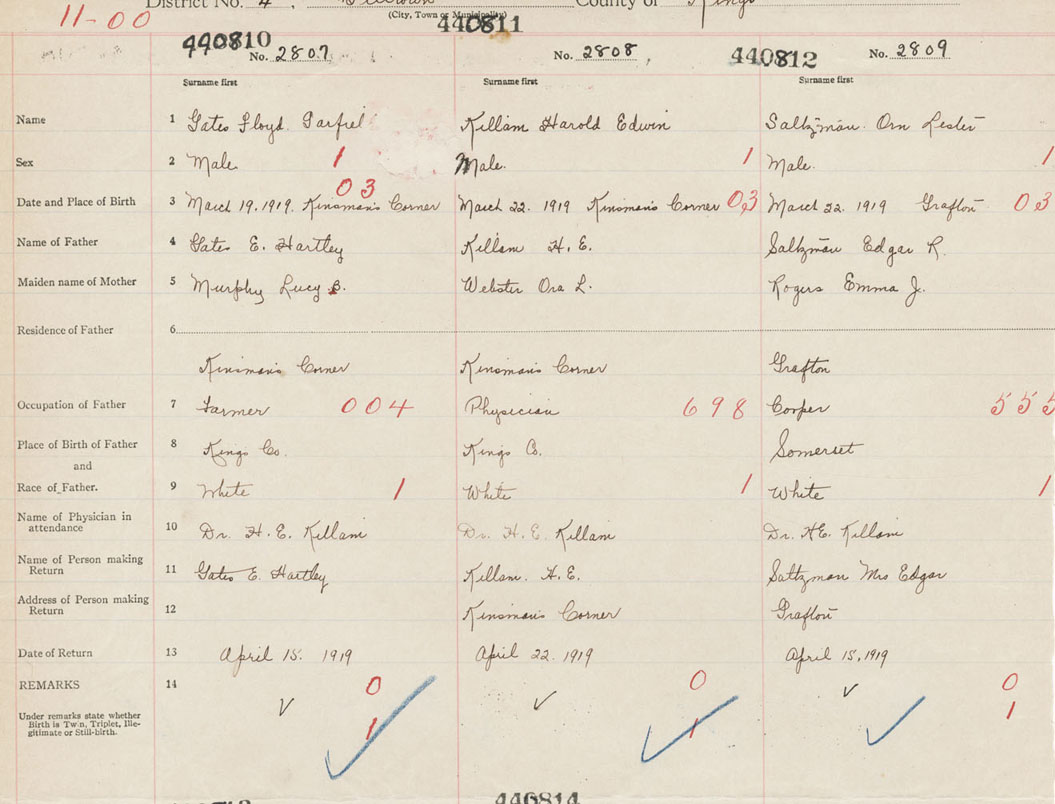 District No. 4, County of Kings
(City, Town or Municipality)
11-00
440810 440811 440812
No. 2807 No. 2808 No. 2809
Surname first Surname first Surname first
Name 1 Gates Floyd Garfiel Killam Harold Edwin Saltzman Orn Lester
Sex 2 Male 1 Male. 1 Male. 1
03
Date and Place of Birth 3 March 19. 1919. Kinsman's Corner March 22. 1919 Kinsman's Corner 03 March 22. 1919 Grafton 03
Name of Father 4 Gates E. Hartley Killam H. E. Saltzman Edgar R.
Maiden name of Mother 5 Murphy Lucy B. Webster Ora L. Rogers Emma J.
Residence of Father 6
Kinsman's Corner Kinsman's Corner Grafton
Occupation of Father 7 Farmer 004 Physician 698 Cooper 555
Place of Birth of Father 8 Kings Co. Kings Co. Somerset
and
Race of Father. 9 White 1 White 1 White 1
Name of Physician in
attendance 10 Dr. H. E. Killam Dr. H. E. Killam Dr. H E. Killam
Name of Person making
Return 11 Gates E. Hartley Killam. H. E. Saltzman Mrs Edgar
Address of Person making
Return 12 Kinsman's Corner Grafton
Date of Return 13 April 15. 1919 April 22. 1919 April 15, 1919
REMARKS 14 0 0 0
Under remarks state whether
Birth is Twin, Triplet, Ille-
gitimate or Still-birth. 1 1 1
440814